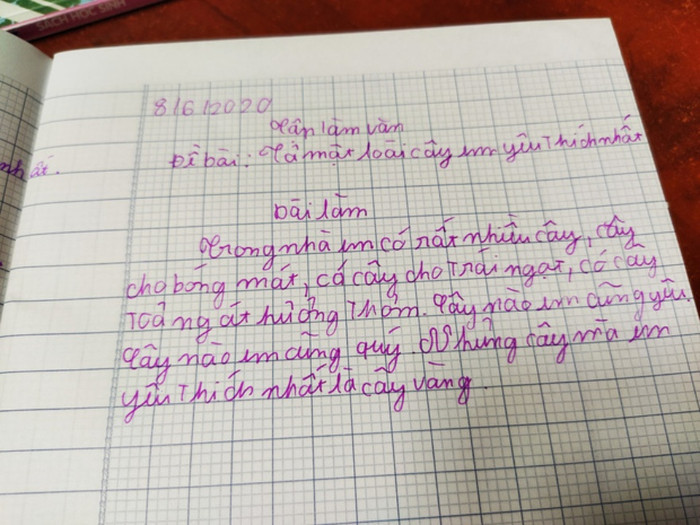 SÁCH HỌC SINH
8/6/2020
Tập làm văn
Đề bài: Tả một loài cây em yêu thích nhất
Bài làm
Trong nhà em có rất nhiều cây, cây
cho bóng mát, có cây cho trái ngọt, có cây
toả ngát hương thơm. Cây nào em cũng yêu,
cây nào em cũng quý. Nhưng cây mà em
yêu thích nhất là cây vàng.
nhất.